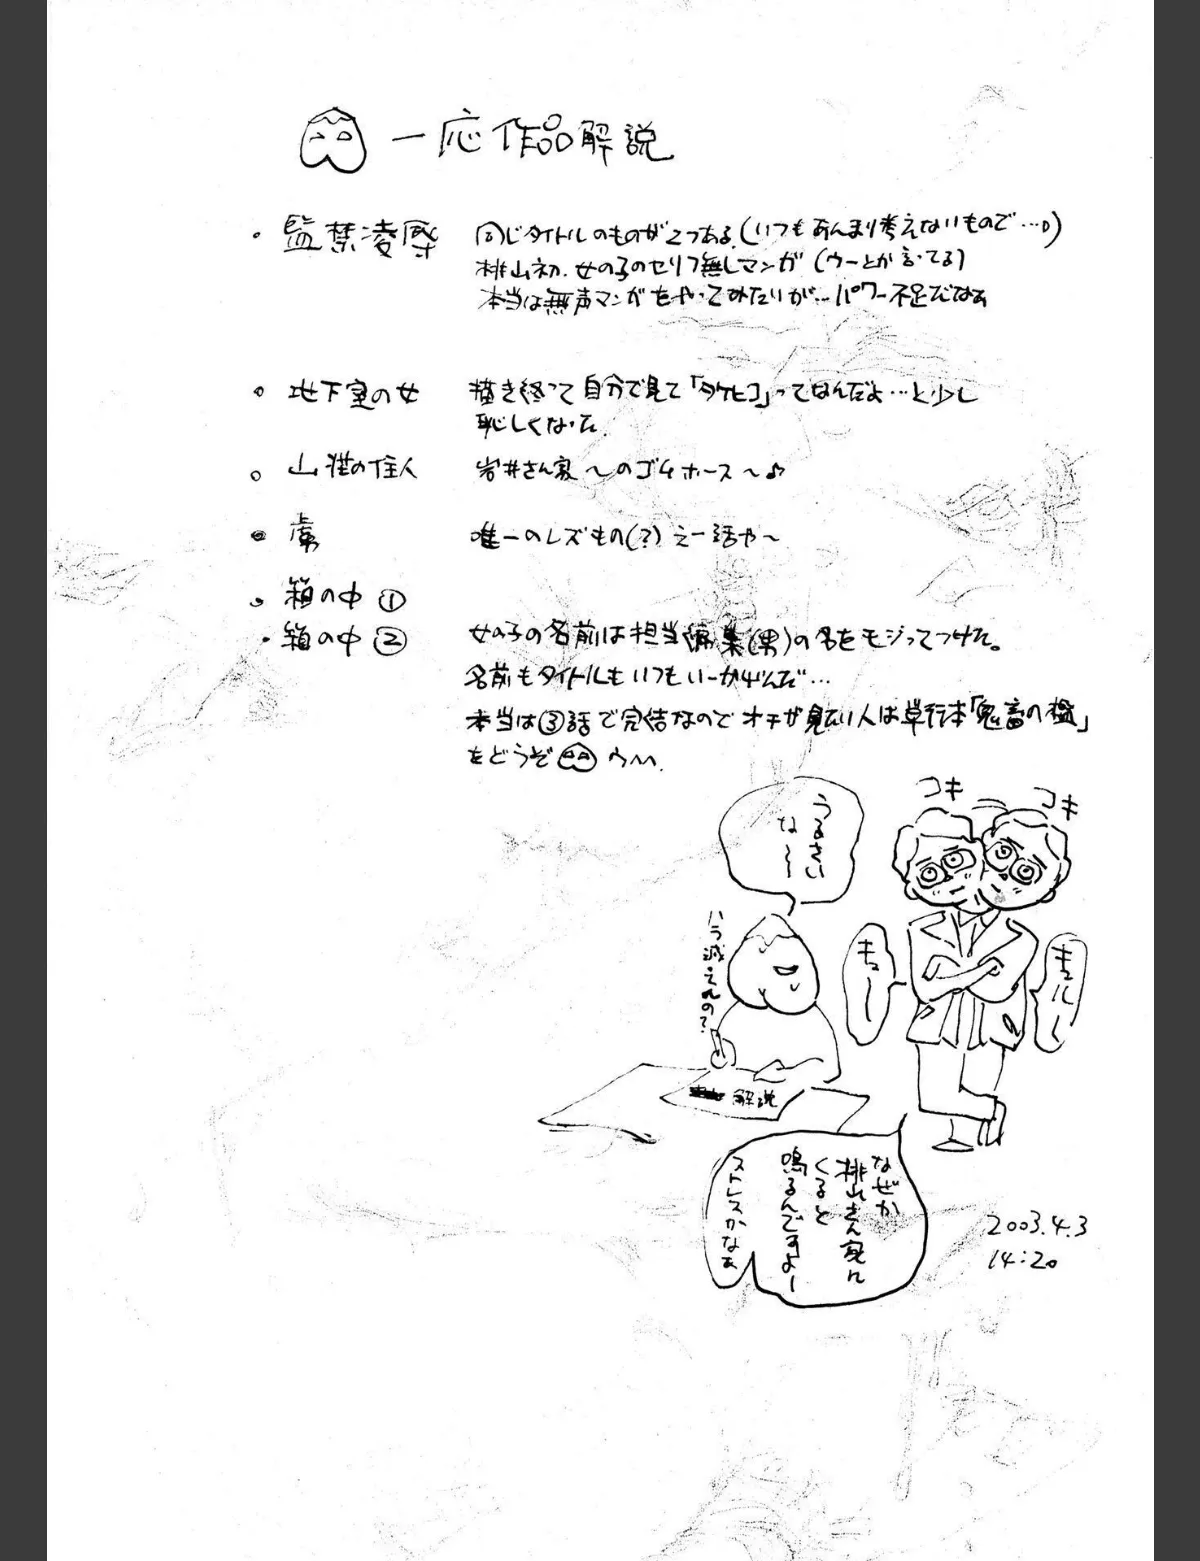 一応作品解説
・監禁凌辱 同じタイトルのものが2つある。(いつもあんまり考えないもので…。)
桃山初、女の子のセリフ無しマンガ(ウーとか言ってる)
本当は無声マンガをやってみたいが…パワー不足だなぁ
・地下室の女 描き終って自分で見て「タケヒコ」ってなんだよ…と少し
恥しくなった。
・山荘の住人 岩井さん家〜のゴムホース〜♪
・虜 唯一のレズもの(?)えー話や〜
・箱の中①
・箱の中② 女の子の名前は担当編集(男)の名をモジってつけた。
名前もタイトルもいつもいーかげんだ…
本当は③話で完結なのでオチが見たい人は単行本「鬼畜の檻」
をどうぞ ウ〜
コキ
コキ
うるさい
な〜
ハラ減ってんの?
キュー
キュルー
解説
なぜか
桃山さん家に
くると
鳴るんですよー
ストレスかなぁ
2003.4.3
14:20